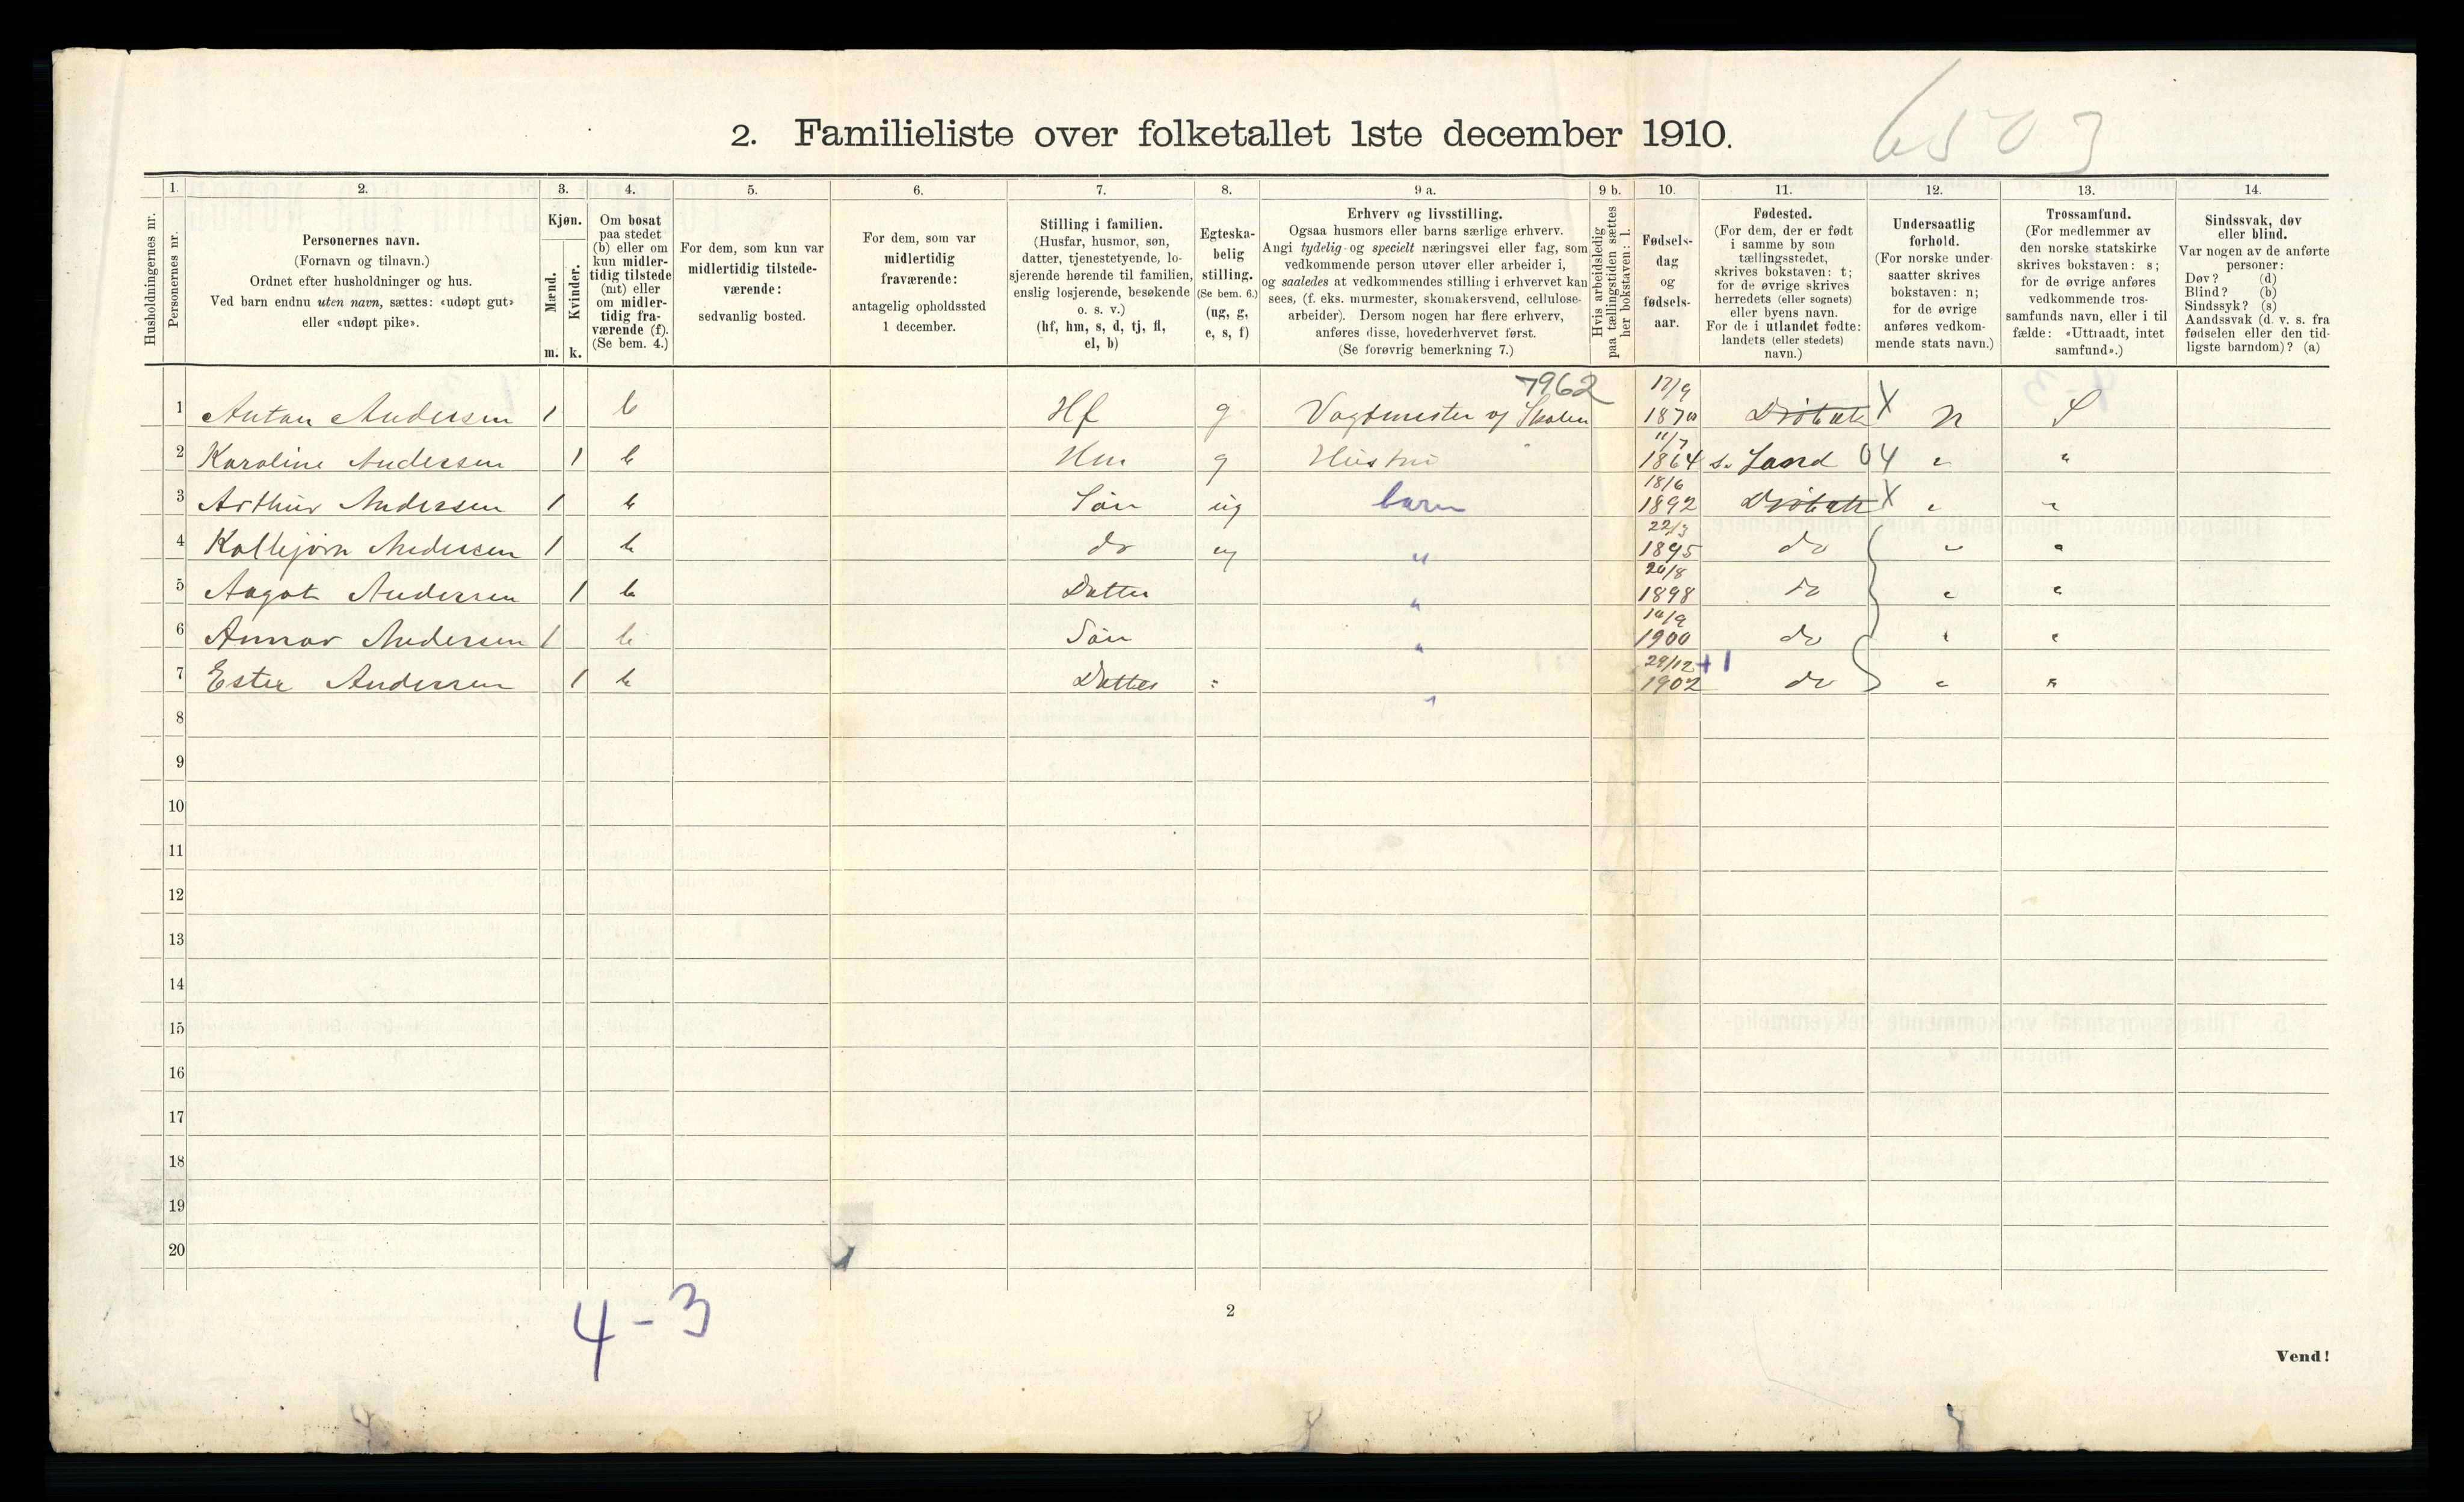 6503
2. Familieliste over folketallet 1ste december 1910.
1. 2. 3. 4. 5. 6. 7. 8. 9 a. 9 b. 10. 11. 12. 13. 14.
Husholdningernes nr.
Personernes nr.
Personernes navn.
(Fornavn og tilnavn.)
Ordnet efter husholdninger og hus.
Ved barn endnu uten navn, sættes: «udøpt gut»
eller «udøpt pike».
Kjøn.
Mænd.
Kvinder.
m. k.
Om bosat
paa stedet
(b) eller om
kun midler-
tidig tilstede
(mt) eller
om midler-
tidig fra-
værende (f).
(Se bem. 4.)
For dem, som kun var
midlertidig tilstede-
værende:
sedvanlig bosted.
For dem, som var
midlertidig
fraværende:
antagelig opholdssted
1 december.
Stilling i familien.
(Husfar, husmor, søn,
datter, tjenestetyende, lo-
sjerende hørende til familien,
enslig losjerende, besøkende
o. s. v.)
(hf, hm, s, d, tj, fl,
el, b)
Egteska-
belig
stilling.
(Se bem. 6.)
(ug, g,
e, s, f)
Erhverv og livsstilling.
Ogsaa husmors eller barns særlige erhverv.
Angi tydelig og specielt næringsvei eller fag, som
vedkommende person utøver eller arbeider i,
og saaledes at vedkommendes stilling i erhvervet kan
sees, (f. eks. murmester, skomakersvend, cellulose-
arbeider). Dersom nogen har flere erhverv,
anføres disse, hovederhvervet først.
(Se forøvrig bemerkning 7.)
Hvis arbeidsledig
paa tællingstiden sættes
her bokstaven: l.
Fødsels-
dag
og
fødsels-
aar.
Fødested.
(For dem, der er født
i samme by som
tællingsstedet,
skrives bokstaven: t;
for de øvrige skrives
herredets (eller sognets)
eller byens navn.
For de i utlandet fødte:
landets (eller stedets)
navn.)
Undersaatlig
forhold.
(For norske under-
saatter skrives
bokstaven: n;
for de øvrige
anføres vedkom-
mende stats navn.)
Trossamfund.
(For medlemmer av
den norske statskirke
skrives bokstaven: s;
for de øvrige anføres
vedkommende tros-
samfunds navn, eller i til
fælde: «Uttraadt, intet
samfund».)
Sindssvak, døv
eller blind.
Var nogen av de anførte
personer:
Døv? (d)
Blind? (b)
Sindssyk? (s)
Aandssvak (d. v. s. fra
fødselen eller den tid-
ligste barndom)? (a)
7962
1 Anton Andersen 1 b Hf g Vagtmester og Skolen 17/9 1870 Drøbak X n S
2 Karoline Andersen 1 b Hm g Hustru 11/7 1864 s. Land 04 " "
3 Arthur Andersen 1 b Søn ug barn 18/6 1892 Drøbak X " "
4 Kolbjørn Andersen 1 b do ug " 22/3 1895 do " "
5 Aagot Andersen 1 b Datter " 20/8 1898 do " "
6 Annar Andersen 1 b Søn " 10/9 1900 do " "
7 Ester Andersen 1 b Datter " 29/12 +1 1902 do " "
8
9
10
11
12
13
14
15
16
17
18
19
20
4-3
2
Vend!